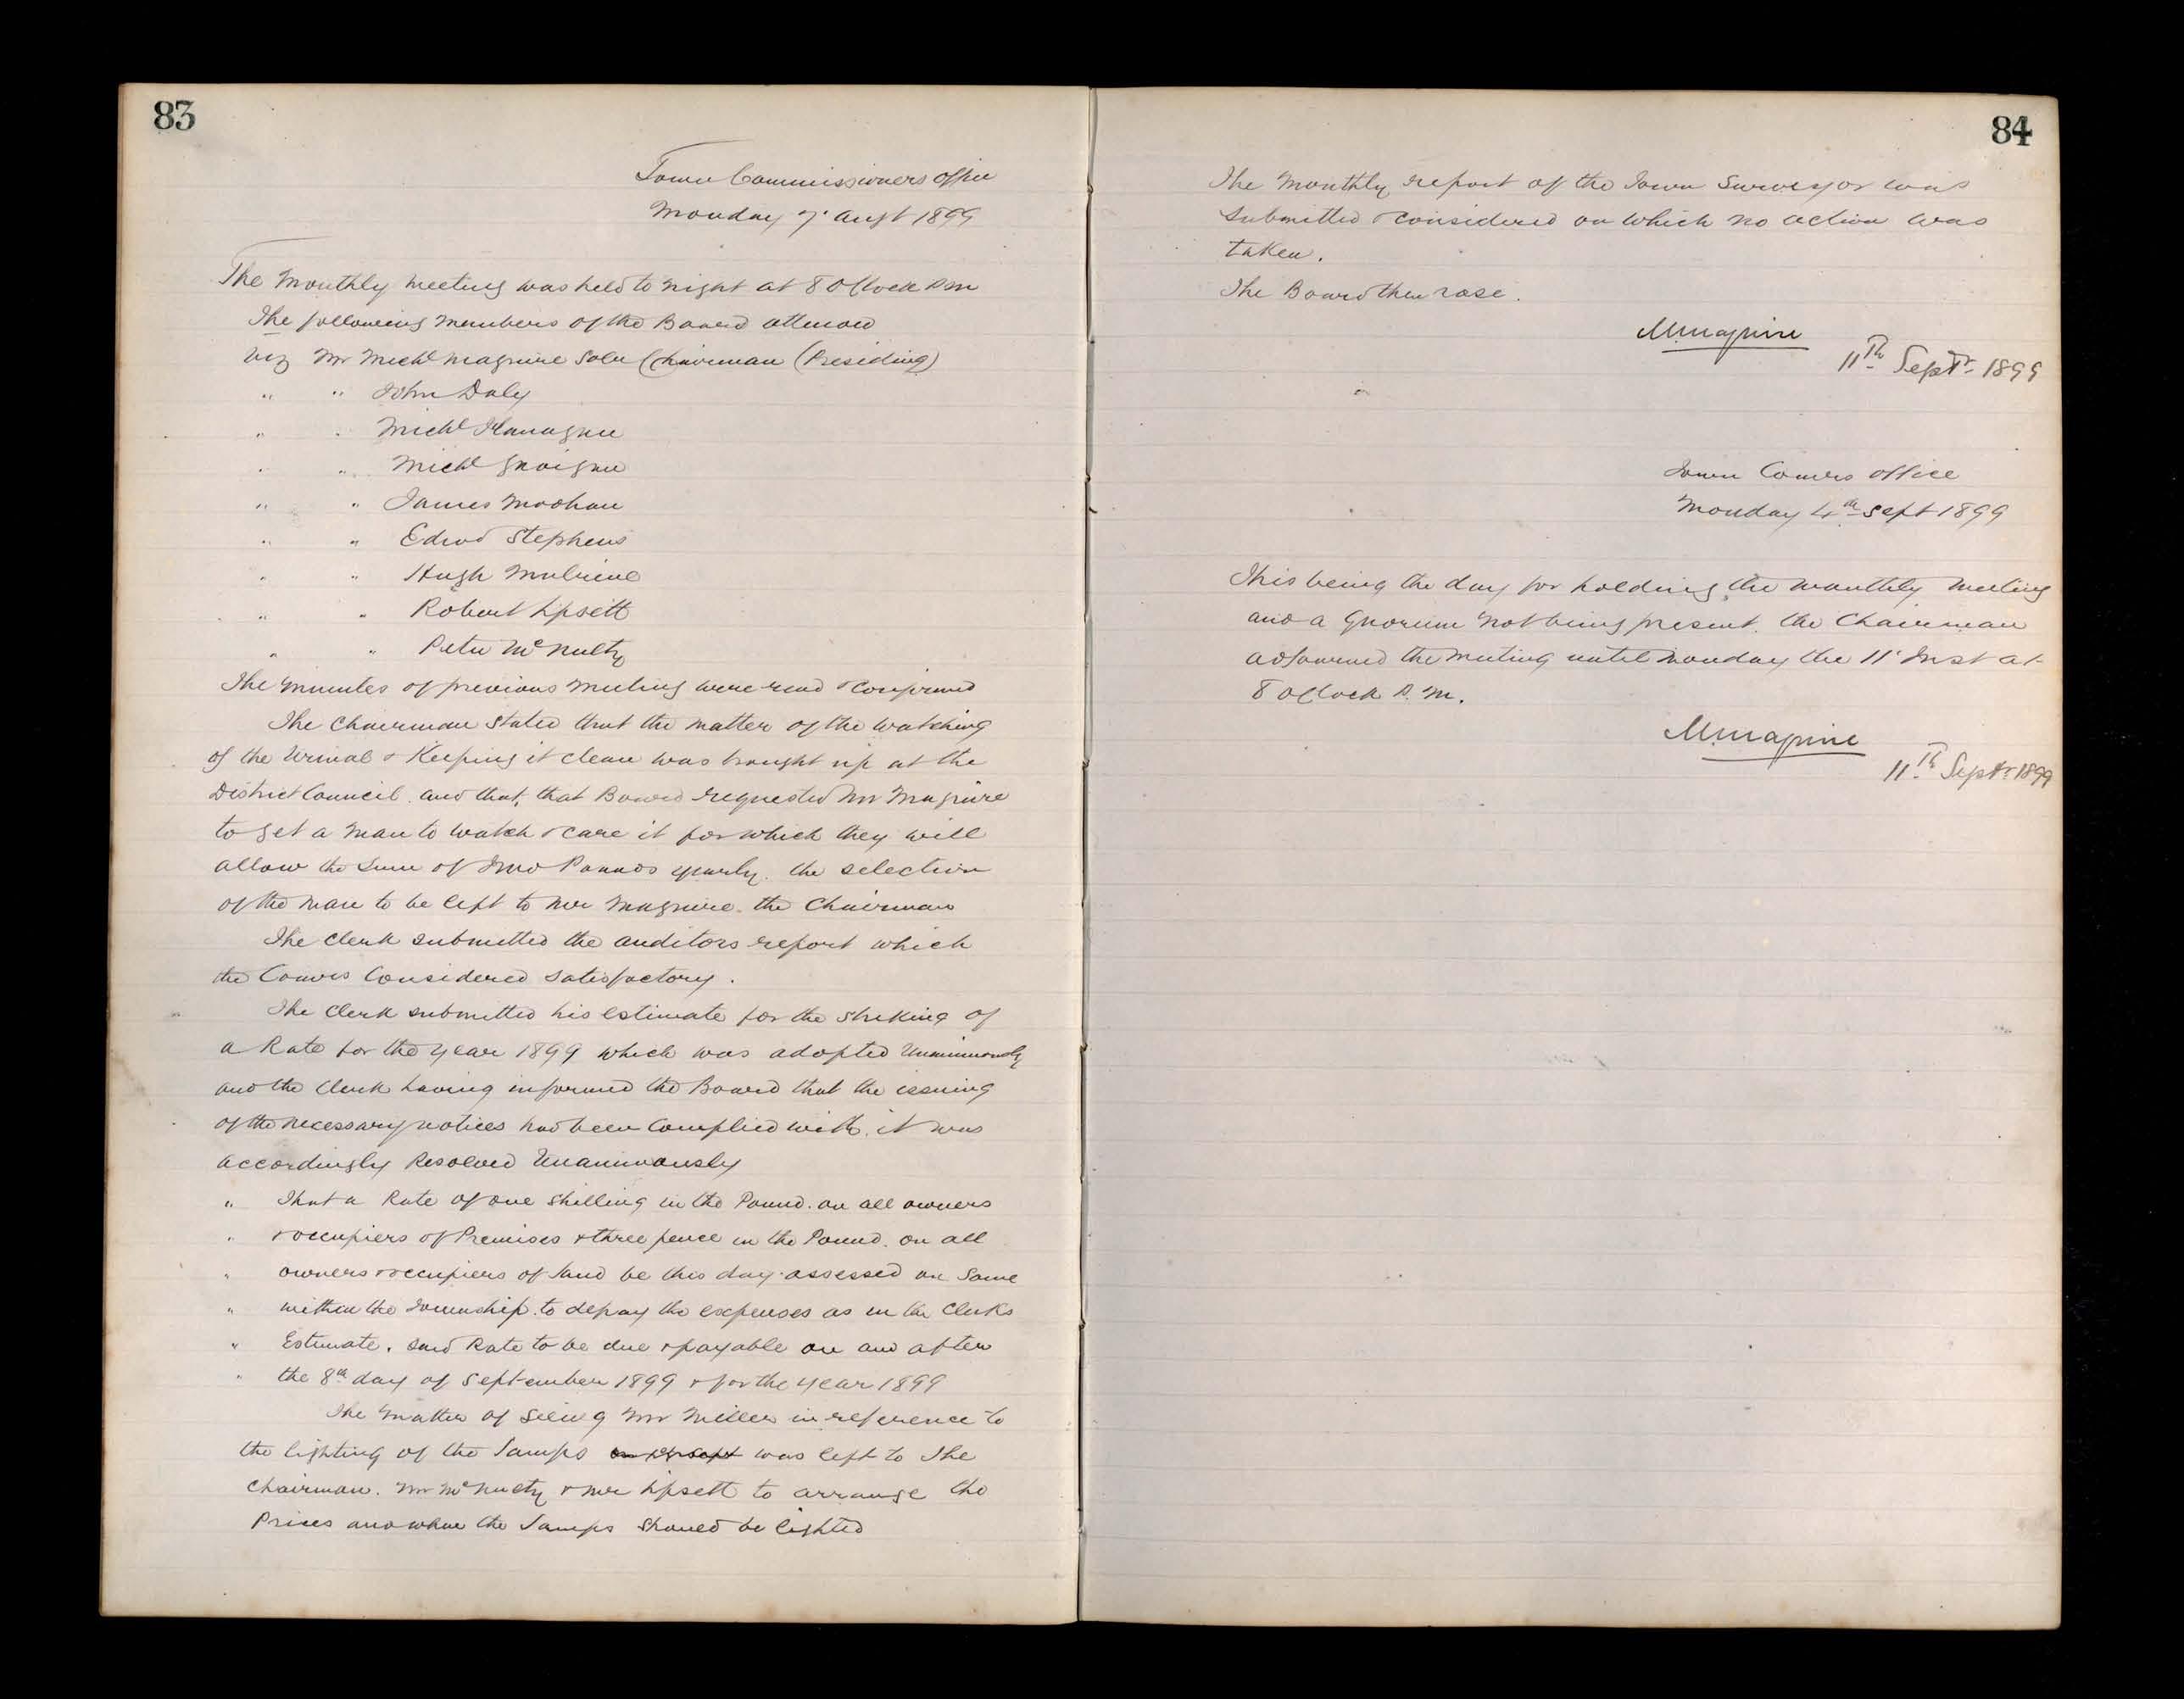 83
Town Commissioners office
Monday 7 Augt 1899
The Monthly Meeting was held to night at 8 O Clock P M
The following Members of the Board attended
Viz Mr Michl Maguire Solr Chairman (Presiding)
" " John Daly
" " Michl Flanagan
" " Michl
" " James Moohan
" " Edwd Stephens
" " Hugh
" " Robert Lipsett
" " Peter McNulty
The Minutes of previous Meeting were read & Confirmed
The Chairman Stated that the matter of the watching
of the Urinal & Keeping it clean was brought up at the
District Council. and that, that Board requested Mr Maguire
to get a Man to watch & care it for which they will
allow the Sum of Two Pounds yearly. the selection
of the Man to be left to Mr Maguire the Chairman
The Clerk submitted the auditors report which
the Comrs Considered Satisfactory.
The Clerk submitted his estimate for the striking of
a Rate for the year 1899 which was adopted Unanimously
and the Clerk having informed the Board that the issuing
of the necessary notices had been Complied with. it was
accordingly Resolved Unanimously
" That a Rate of one Shilling in the Pound. on all owners
" & occupiers of Premises & three pence in the Pound. on all
" owners & occupiers of Land be this day assessed on Same
" within the Township. to defray the expenses as in the Clerks
" Estimate. said Rate to be due & payable on and after
" the 8th day of September 1899 & for the year 1899
The Matter of Seeing Mr Miller in reference to
the lighting of the Lamps was left to The
Chairman. Mr McNulty & Mr Lipsett to arrange the
Prices and when the Lamps should be lighted
84
The Monthly report of the Town Surveyor was
Submitted & considered on which no action was
taken.
The Board then rose.
MMaguire
11th Septr 1899
Town Comrs office
Monday 4th Sept 1899
This being the day for holding the monthly Meeting
and a Quorum Not being present. the Chairman
adjourned the Meeting until Monday the 11 Inst at
8 o Clock P. M.
MMaguire
11th Septr 1899